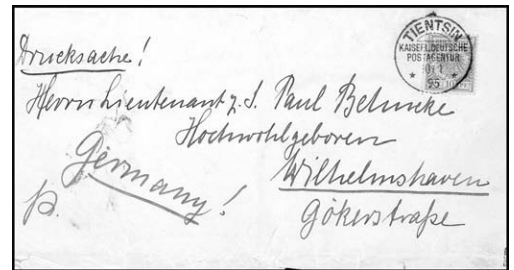 Drucksache!
TIENTSIN
KAISERL. DEUTSCHE
POSTAGENTUR
95
Herrn Lieutenant z. S. Paul Behncke
Hochwohlgeboren
Germany!
Wilhelmshaven
Gökerstraße